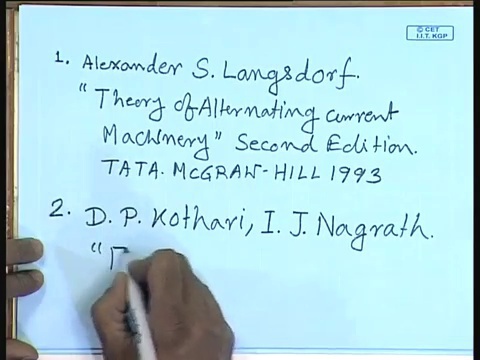 © CET
I.I.T. KGP
1. Alexander S. Langsdorf.
"Theory of Alternating current
Machinery" Second Edition.
TATA. McGRAW-HILL 1993
2. D. P. Kothari, I. J. Nagrath.
"